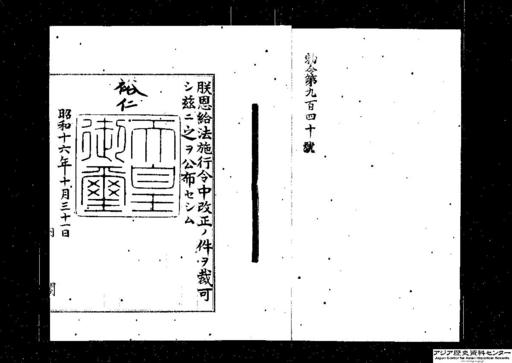 勅令第九百四十號
朕恩給法施行令中改正ノ件ヲ裁可
シ茲ニ之ヲ公布セシム
裕仁
天皇御璽
昭和十六年十月三十一日
内閣
アジア歴史資料センター
Japan Center for Asian Historical Records